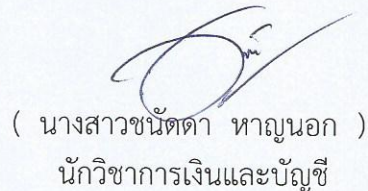 ( นางสาวชนัดดา หาญนอก )
นักวิชาการเงินและบัญชี